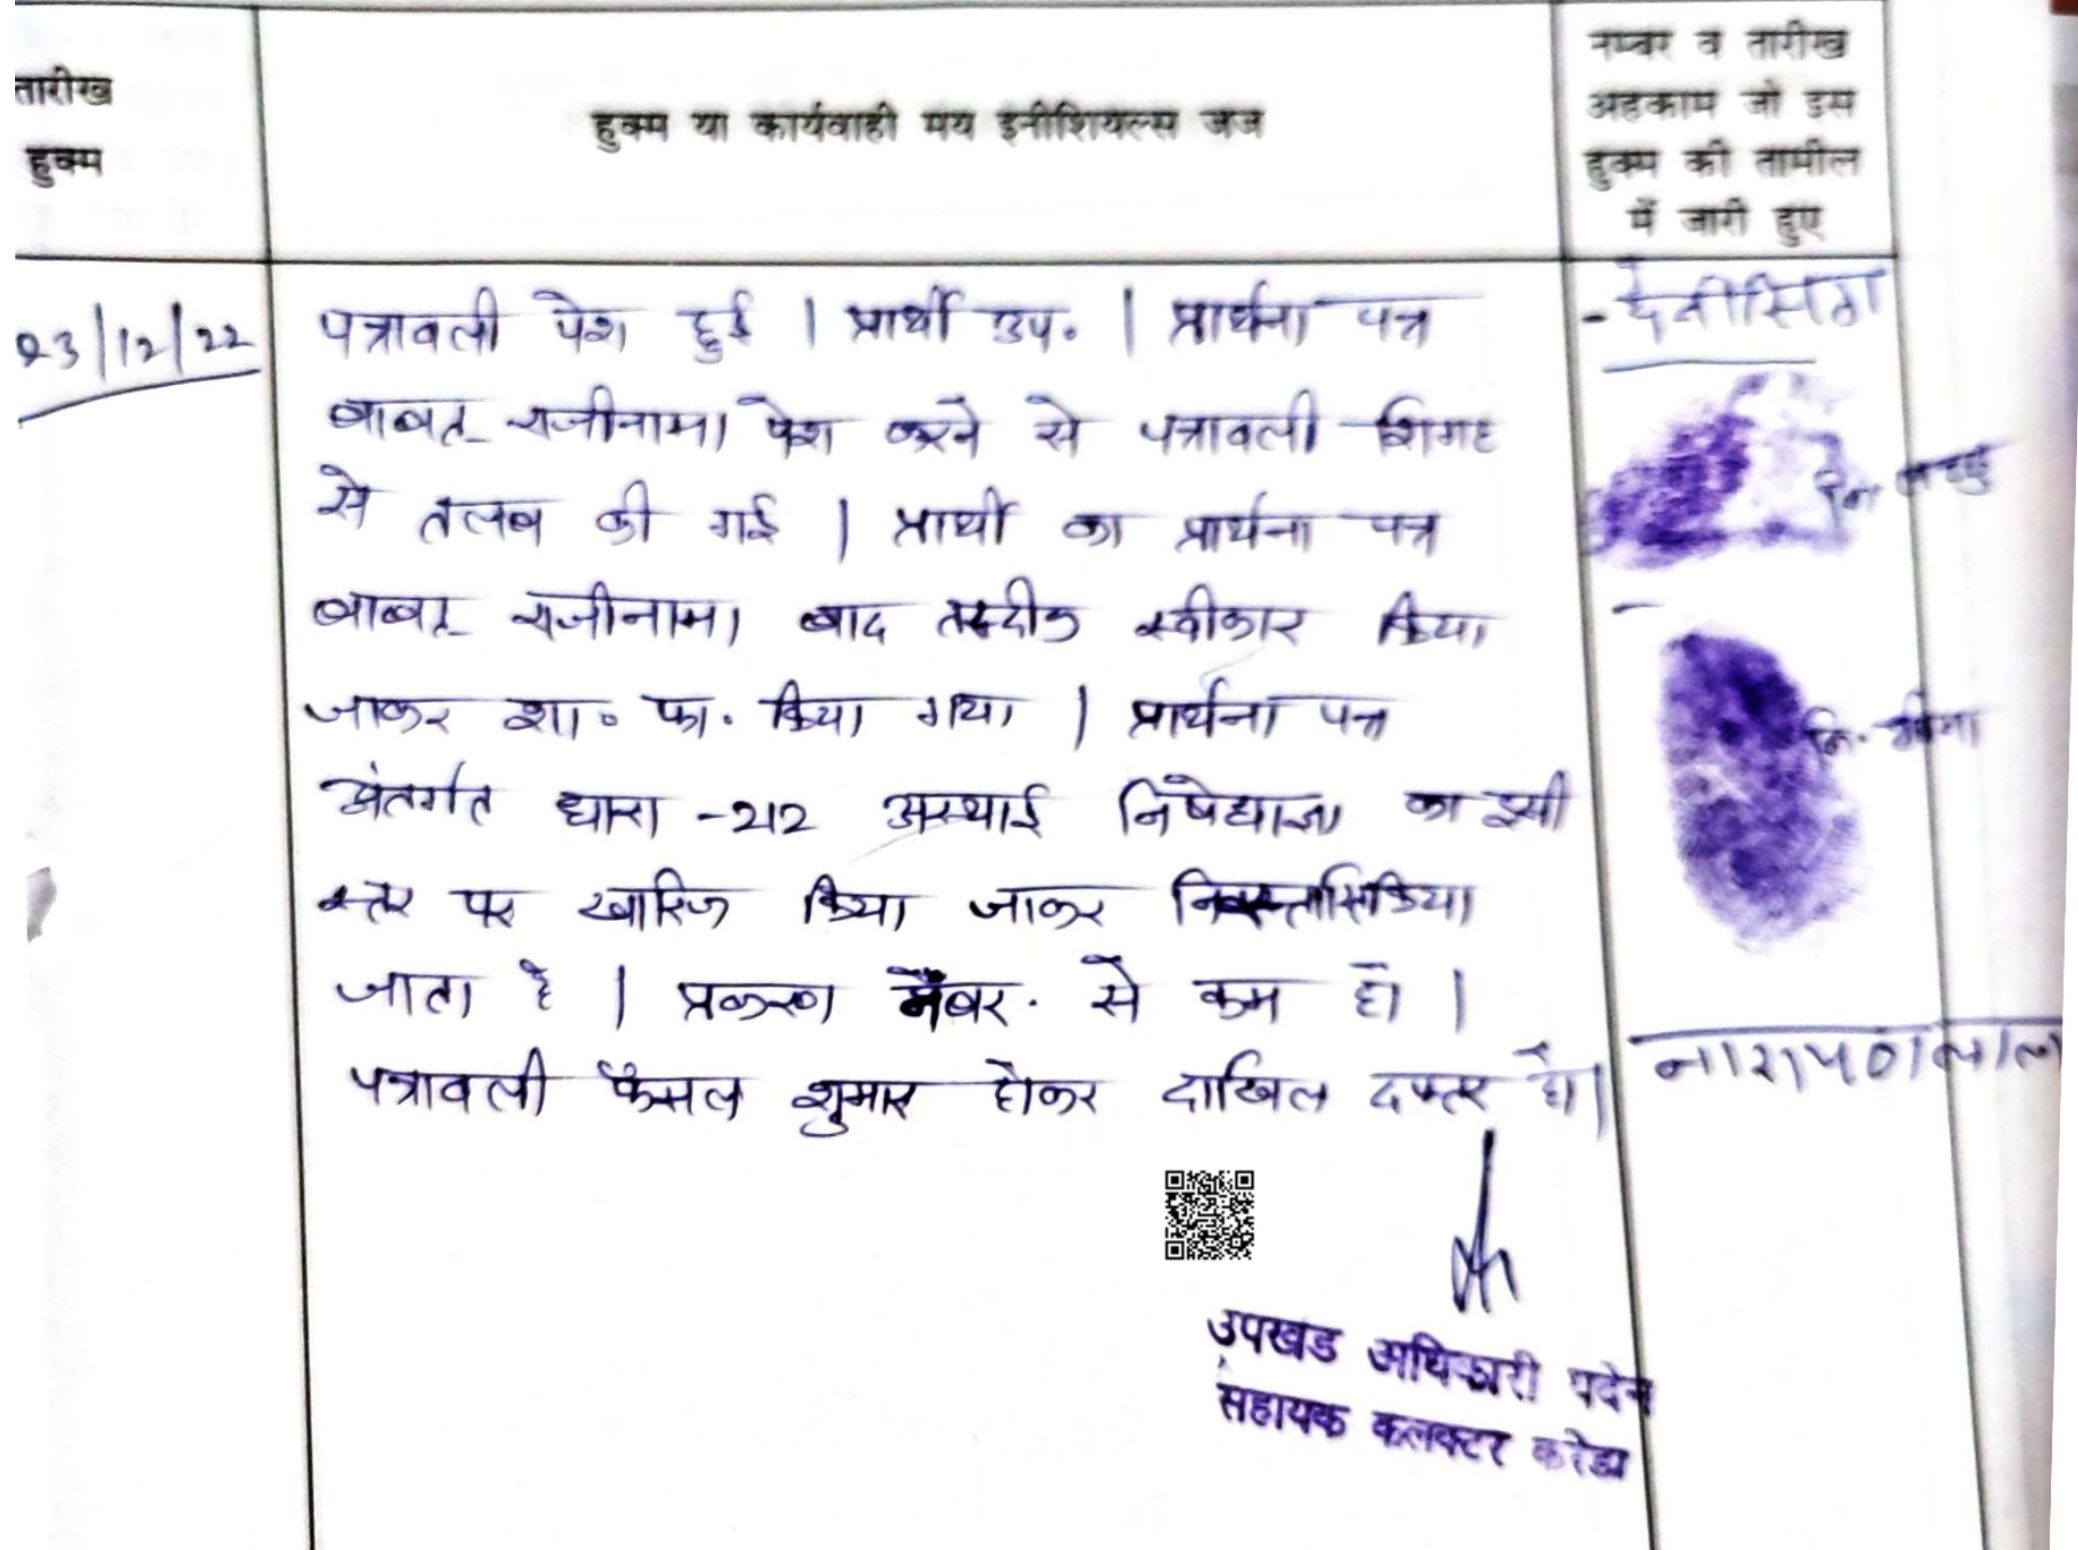 तारीख
हुक्म
हुक्म या कार्यवाही मय इनीशियल्स जज
नम्बर व तारीख
अहकाम जो इस
हुक्म की तामील
में जारी हुए
23/12/22
पत्रावली पेश हुई | प्रार्थी उप. | प्रार्थना पत्र
बाबत राजीनामा पेश करने से पत्रावली
से तलब की गई | प्रार्थी का प्रार्थना पत्र
बाबत राजीनामा बाद तस्दीक स्वीकार किया
जाकर शा. फा. किया गया | प्रार्थना पत्र
अंतर्गत धारा -212 अस्थाई निषेधाज्ञा का इसी
स्तर पर खारिज किया जाकर किया
जाता है | प्रकरण नंबर. से कम हो |
पत्रावली फैसल शुमार होकर दाखिल दफ्तर हो|
- देवीसिंग
नारायण लाल
उपखंड अधिकारी पदेन
सहायक कलक्टर करेडा